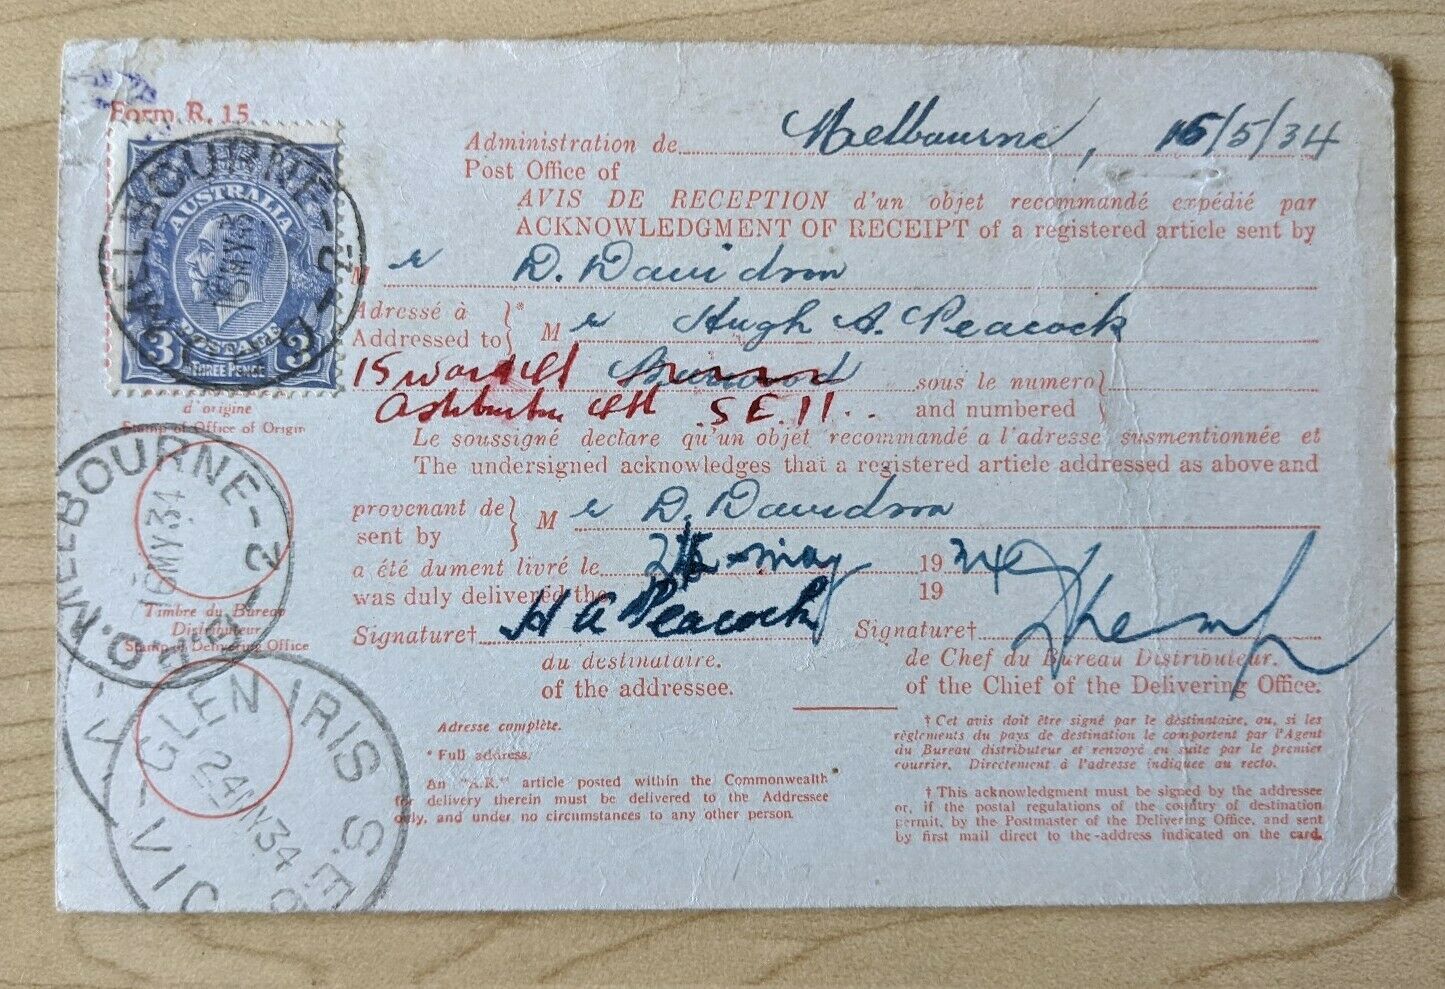 Form R. 15
Administration de Melbourne, 16/5/34
Post Office of
AVIS DE RECEPTION d'un objet recommandé expédié par
ACKNOWLEDGMENT OF RECEIPT of a registered article sent by
M r D. Davidson
Adressé à
Addressed to
* M r Hugh A. Peacock
Burwood
sous le numero
and numbered
Ashburton S.E.11..
Le soussigné declare qu'un objet recommandé a l'adresse susmentionnée et
The undersigned acknowledges that a registered article addressed as above and
provenant de
sent by
M r D. Davidson
a été dument livré le May 19 34
was duly delivered the 19
Signature† H A Peacock
Signature†
du destinataire.
of the addressee.
de Chef du Bureau Distributeur.
of the Chief of the Delivering Office.
Adresse complète.
* Full address.
An "A.R." article posted within the Commonwealth
for delivery therein must be delivered to the Addressee
only, and under no circumstances to any other person
† Cet avis doit être signé par le destinataire, ou, si les
règlements du pays de destination le comportent par l'Agent
du Bureau distributeur et renvoyé en suite par le premier
courrier. Directement à l'adresse indiquee au recto.
† This acknowledgment must be signed by the addressee
or, if the postal regulations of the country of destination
permit, by the Postmaster of the Delivering Office, and sent
by first mail direct to the address indicated on the card.
AUSTRALIA
POSTAGE
3 3
THREE PENCE
MELBOURNE-2
16MY34
d'origine
Stamp of Office of Origin
G.P.O. MELBOURNE-2
16MY34
Timbre du Bureau
Distributeur
Stamp of Delivering Office
GLEN IRIS S.E.6
24MY34
VIC